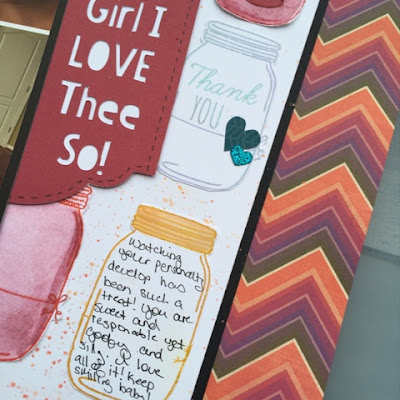 Girl I
LOVE
Thee
So!
Thank
YOU
Watching
your personalty
develop has
been such a
treat! You are
sweet and
responsable yet
goofy and
silly. I love
all of it! Keep
smiling baby!